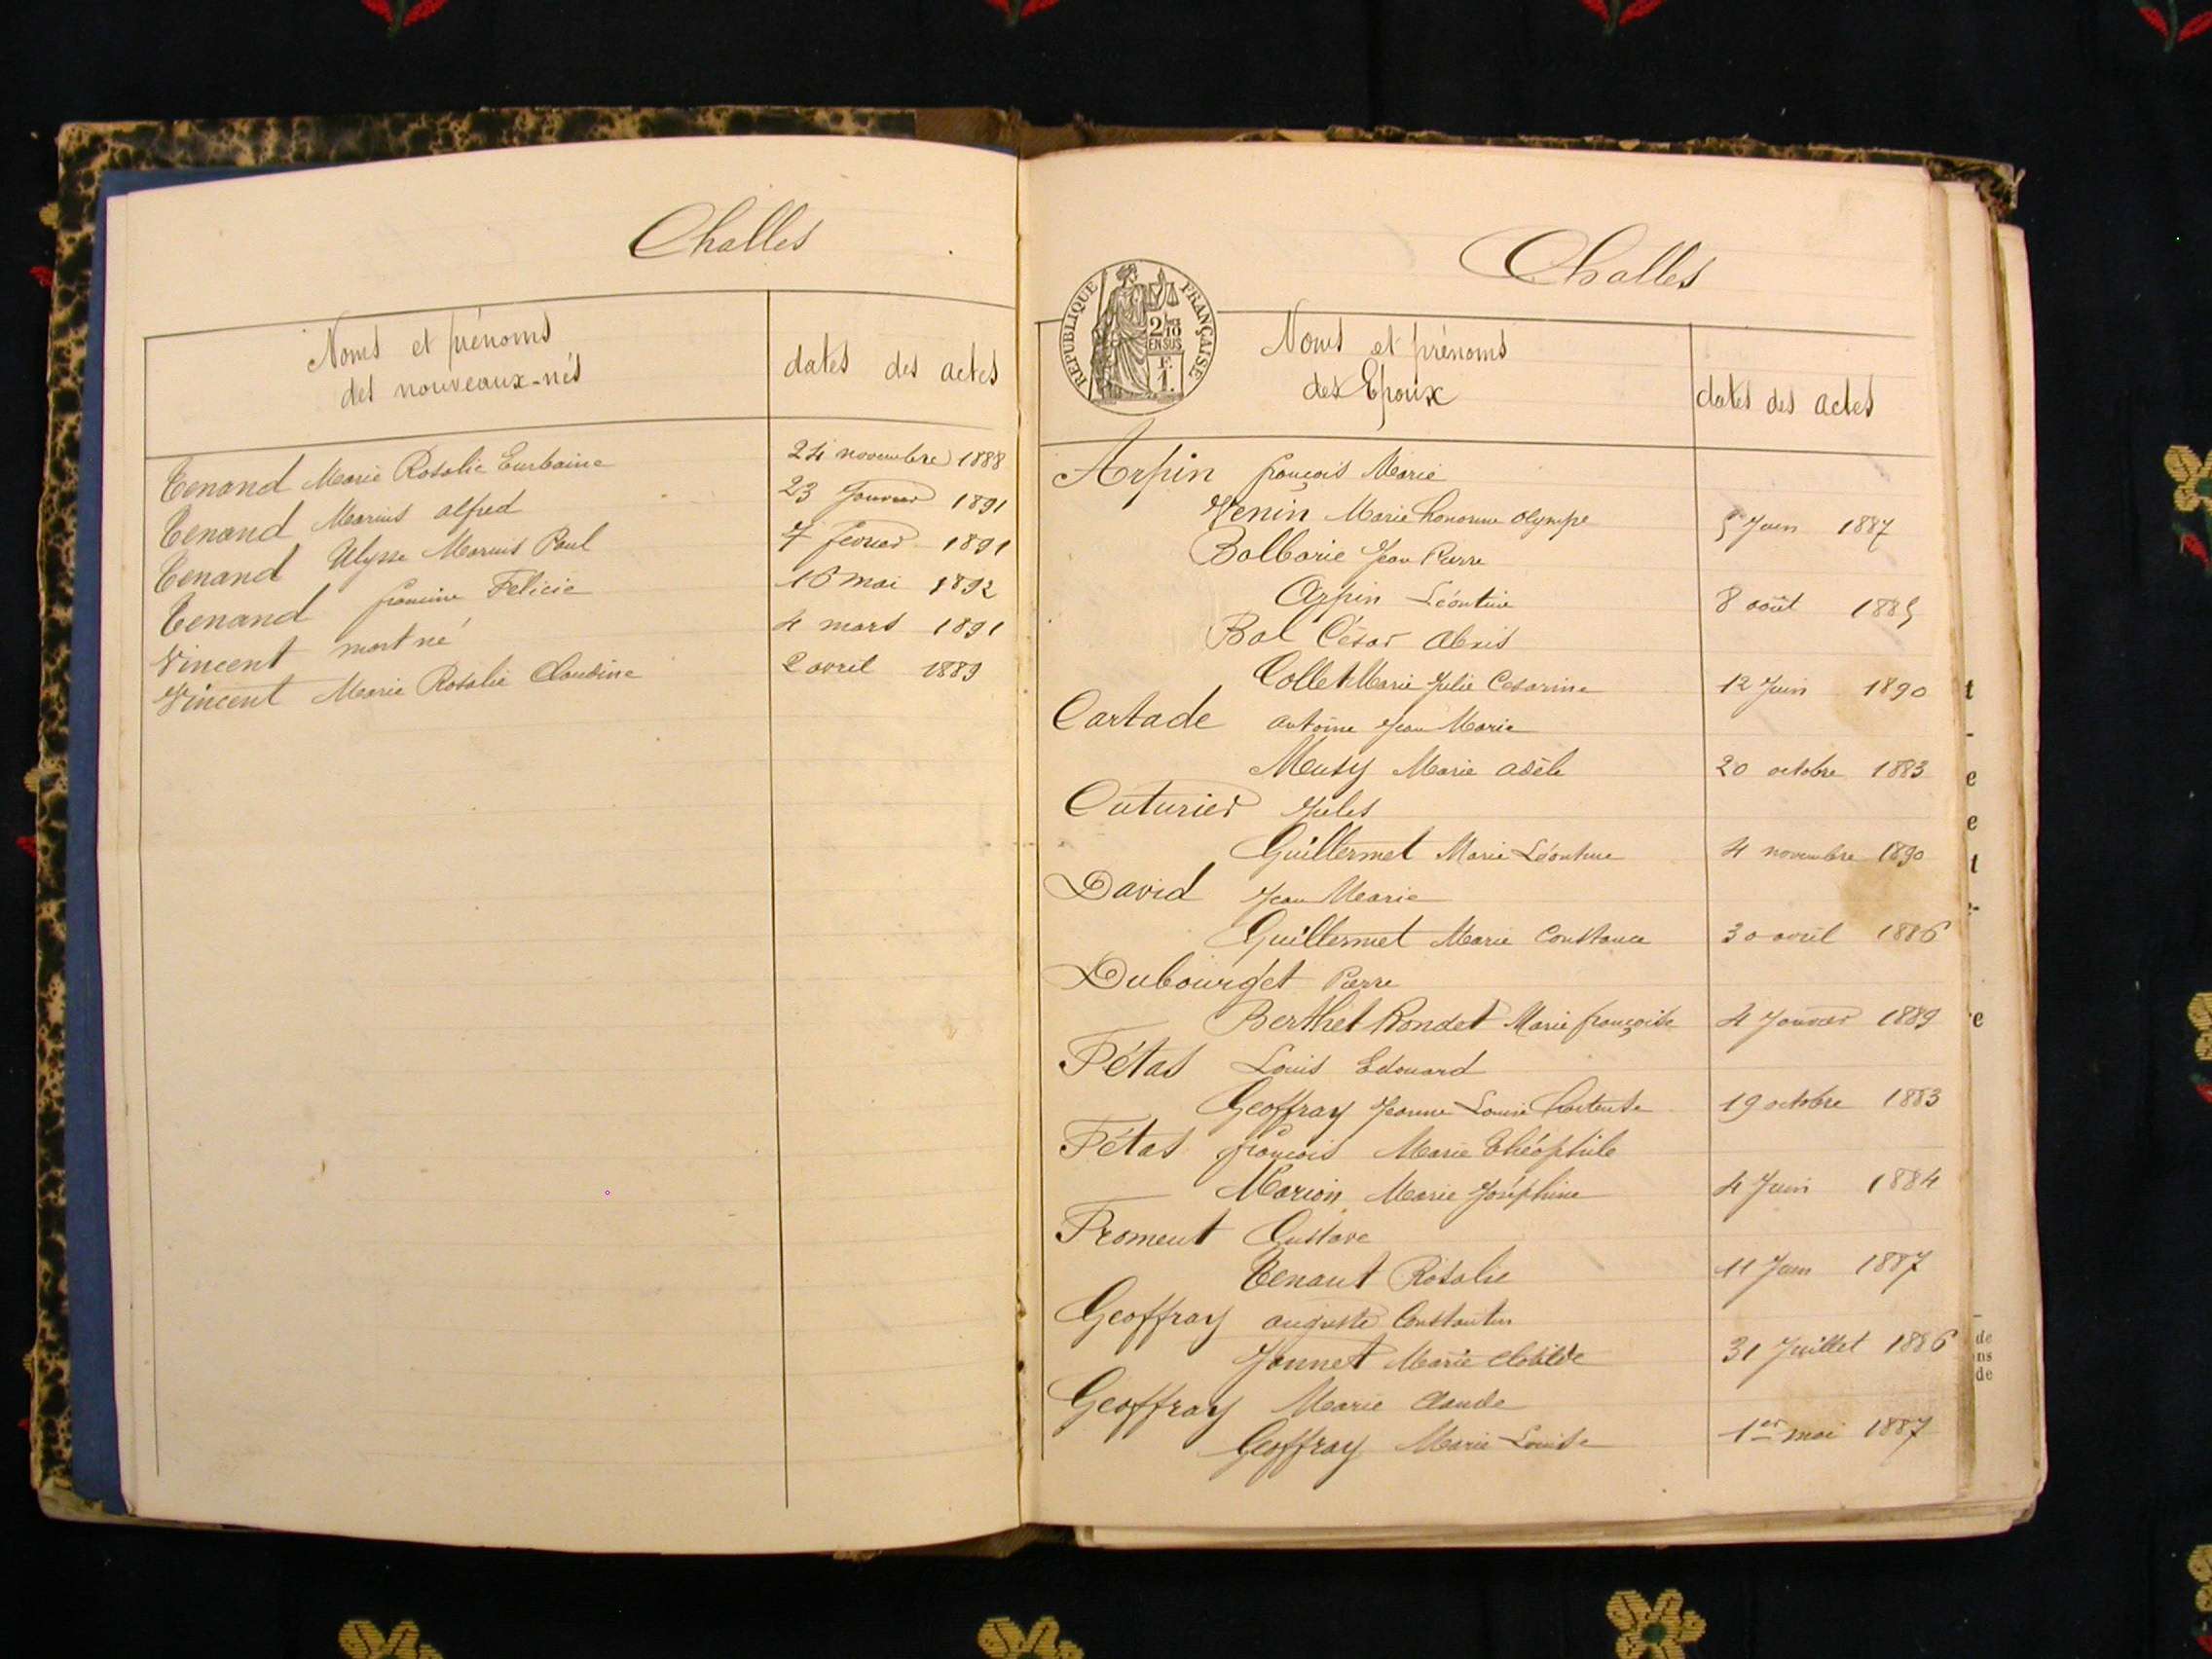 Challes
Noms et prénoms
des nouveaux-nés
dates des actes
Tenand Marie Rosalie 24 novembre 1888
Tenand Marius alfred 23 Janvier 1891
Tenand Ulysse Marius Paul 7 fevrier 1891
Tenand francine Felicie 16 mai 1892
Vincent mort né 4 mars 1891
Vincent Marie Rosalie Claudine 2 avril 1889
Challes
REPUBLIQUE FRANÇAISE
2/10
EN SUS
F.
1.
Noms et prénoms
des Epoux
dates des actes
Arpin françois Marie
Venin Marie honorine olympe 5 Juin 1887
Balbarie Jean Pierre
Arpin Léontine 8 août 1885
Bal César alexis
Collet Marie Julie Cesarine 12 Juin 1890
Cartade antoine Jean Marie
Musy Marie adèle 20 octobre 1883
Cuturier Jules
Guillermet Marie Léontine 4 novembre 1890
David Jean Marie
Guillermet Marie Constance 30 avril 1886
Dubourget Pierre
Berthet Rondet Marie françoise 4 Janvier 1889
Fétas Louis Edouard
Geoffray Jeanne Louise hortense 19 octobre 1883
Fétas françois Marie théophile
Marion Marie Joséphine 4 Juin 1884
Froment Gustave
Tenant Rosalie 11 Juin 1887
Geoffray auguste Constantin
Jannet Marie clotilde 31 Juillet 1886
Geoffray Marie claude
Geoffray Marie Louise 1er mai 1887